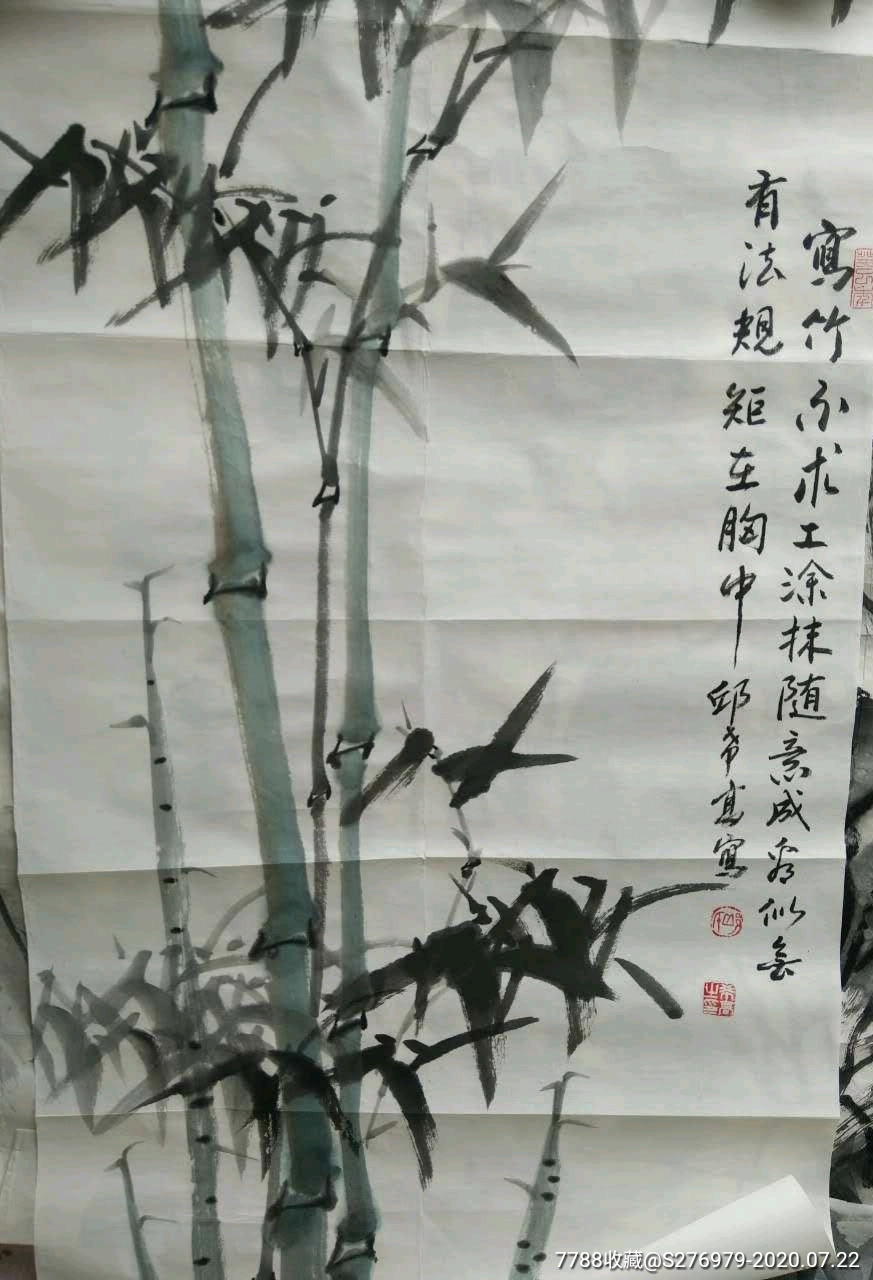 寫竹不求工涂抹随意成看似無
有法規矩在胸中 邱希高寫
7788收藏@S276979-2020.07.22